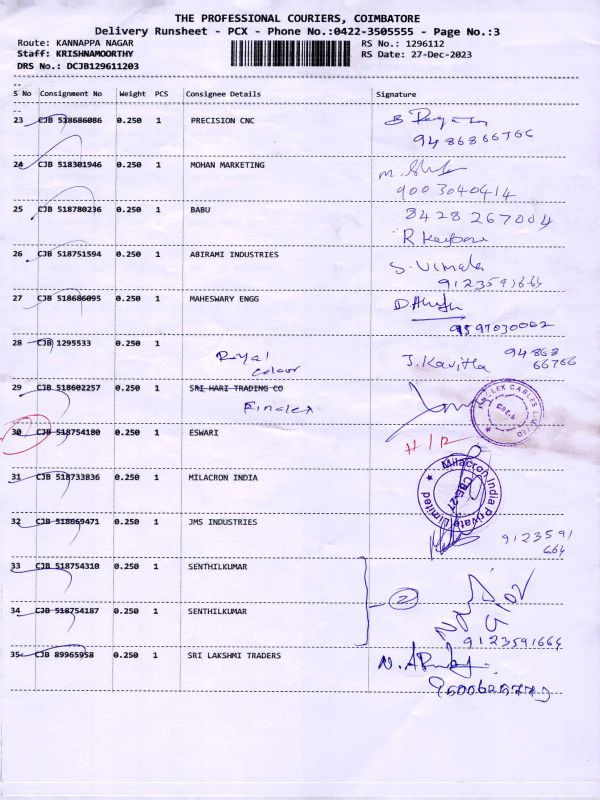 THE PROFESSIONAL COURIERS, COIMBATORE
Delivery Runsheet - PCX - Phone No.:0422-3505555 - Page No.:3
Route: KANNAPPA NAGAR RS No.: 1296112
Staff: KRISHNAMOORTHY RS Date: 27-Dec-2023
DRS No.: DCJB129611203
S No Consignment No Weight PCS Consignee Details Signature
23 CJB 518686086 0.250 1 PRECISION CNC
9486866766
24 CJB 518301946 0.250 1 MOHAN MARKETING
9003040414
25 CJB 518780236 0.250 1 BABU 8428267004
26 CJB 518751594 0.250 1 ABIRAMI INDUSTRIES S. Vimala
9123591664
27 CJB 518686095 0.250 1 MAHESWARY ENGG
9597030062
28 CJB 1295533 0.250 1 Royal colour J. Kavitha 94868 66766
29 CJB 518602257 0.250 1 SRI HARI TRADING CO
Finolex
30 CJB 518754180 0.250 1 ESWARI
31 CJB 518733836 0.250 1 MILACRON INDIA
Milacron India Private Limited
CBE-27
32 CJB 518669471 0.250 1 JMS INDUSTRIES 9123591 664
33 CJB 518754310 0.250 1 SENTHILKUMAR
2
34 CJB 518754187 0.250 1 SENTHILKUMAR
9123591664
35 CJB 89965958 0.250 1 SRI LAKSHMI TRADERS